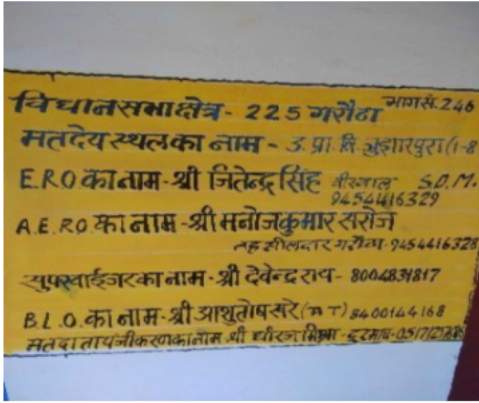 विधानसभा क्षेत्र - 225 गरौठा भाग सं. 246
मतदेय स्थल का नाम - उ. प्रा. वि. जुझारपुरा (1-8
E.R.O. का नाम - श्री जितेन्द्र सिंह S.D.M.
9454416329
A.E.R.O. का नाम - श्री मनोज कुमार सरोज
तहसीलदार गरौठा - 9454416328
सुपरवाईजर का नाम - श्री देवेन्द्र राय - 8004831817
B.L.O. का नाम - श्री आशुतोष खरे 8400144168
का नाम श्री धीरज मिश्रा - दूरभाष -